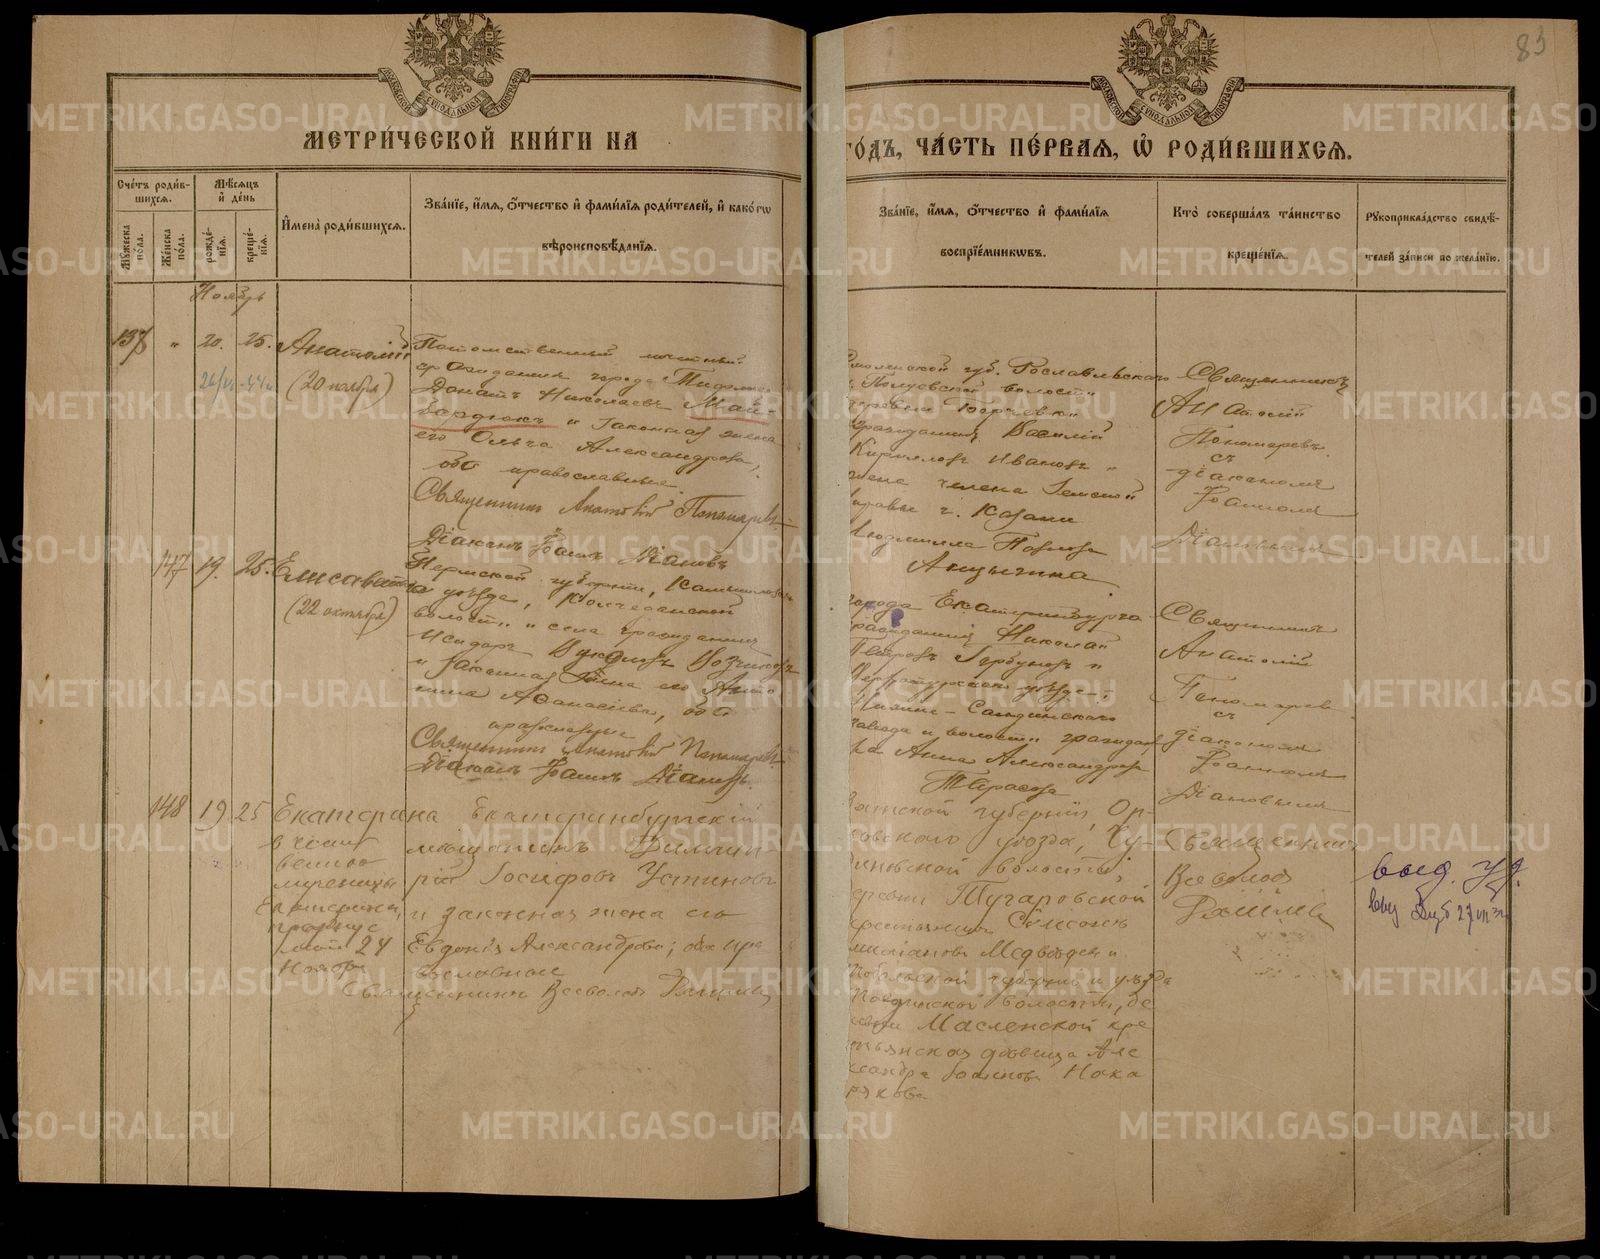 83
МЕТРИ́ЧЕСКОЙ КНИ́ГИ НА
ГО́ДЪ, ЧА́СТЬ ПЕ́РВАЯ, Ѽ РОДИ́ВШИХСЯ.
Сче́тъ роди́в-
шихся.
Му́жеска по́ла.
Же́нска по́ла.
Мѣ́сяцъ
и́ де́нь
рожде́-
нія.
креще́-
нія.
И҆мена̀ роди́вшихся.
Зва́ніе, и҆́мя, о҆́тчество и҆ фами́лія роди́телей, и҆ како́гѡ
вѣроисповѣ́данія.
Зва́ніе, и҆́мя, о҆́тчество и҆ фами́лія
воспріе́мникѡвъ.
Кто̀ соверша́лъ та́инство
креще́нія.
Рукоприкла́дство свидѣ́-
телей за́писи по жела́нію.
Ноябрь
137 " 20. 25. Анатолій
(20 ноября)
Потомственный почетный
гражданинъ города
Донатъ Николаевъ Май-
бардюкъ и законная жена
его Ольга Александрова,
оба православные.
Священникъ Анатолій Пономаревъ
Діаконъ Іоаннъ Діановъ
Смоленской губ. Рославльскаго
волости
гражданинъ Василій
Кирилловъ Ивановъ и
жена члена Земской
управы г. Казани
Людмилла Павлова
Священникъ
Анатолій
Пономаревъ
съ
діакономъ
Іоанномъ
Діановымъ
147 19. 25. Елисавета
(22 октября)
Пермской губерніи, Камышловскаго
уѣзда, Колчеданской
волости и села гражданинъ
Исидоръ Вуколовъ
и законная жена его Анто-
нина Афанасіева, оба
православные
Священникъ Анатолій Пономаревъ
Діаконъ Іоаннъ Діановъ.
города Екатеринбурга
гражданинъ Николай
Петровъ Горбуновъ и
Верхотурскаго уѣзда,
Нижне-Салдинскаго
завода и волости граждан
ка Анна Александрова
Тарасова
Священникъ
Анатолій
Пономаревъ
съ
діакономъ
Іоанномъ
Діановымъ
148 19. 25 Екатерина
в честь
велико
мученицы
Екатерины,
праздну
емой 24
Ноября
Екатеринбургскій
мѣщанинъ
Іосифовъ Устиновъ
и законная жена его
Евдокія Александрова; оба пра
вославные
Священникъ Всеволодъ
Вятской губерніи, Ор-
ловскаго уѣзда, Чу-
диновской волости,
деревни Тугаровской
крестьянинъ Симеонъ
Медвѣдевъ и
Тобольской губерніи и уѣзда
волости, де
ревни Масленской кре
стьянская дѣвица Але
ксандра Іоаннова
Священникъ
Всеволодъ
выд. уд.
METRIKI.GASO-URAL.RU